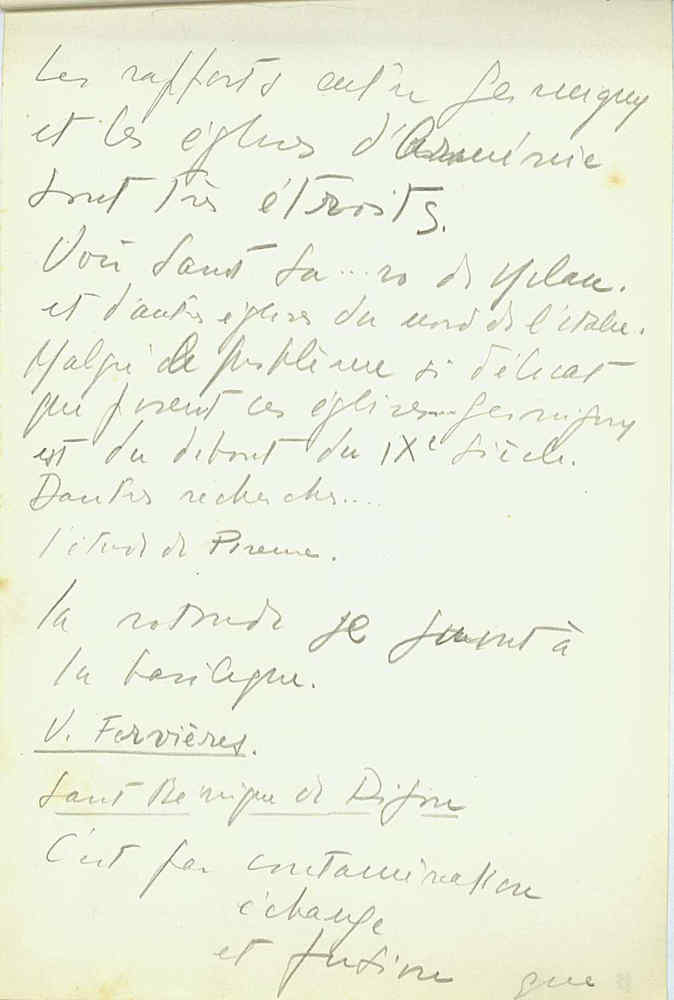 Les rapports entre Germigny
et les églises d'Arménie
sont très étroits.
Voir Saint Sa...ro de Milan.
et d'autres églises du nord de l'Italie.
Malgré le problème si délicat
que posent ces églises... Germigny
est du début du IXe siècle.
D'autres recherches....
l'étude de
la rotonde se joint à
la basilique.
V. Ferrières.
Saint Bénigne de Dijon
C'est par contamination
échange
et fusion que